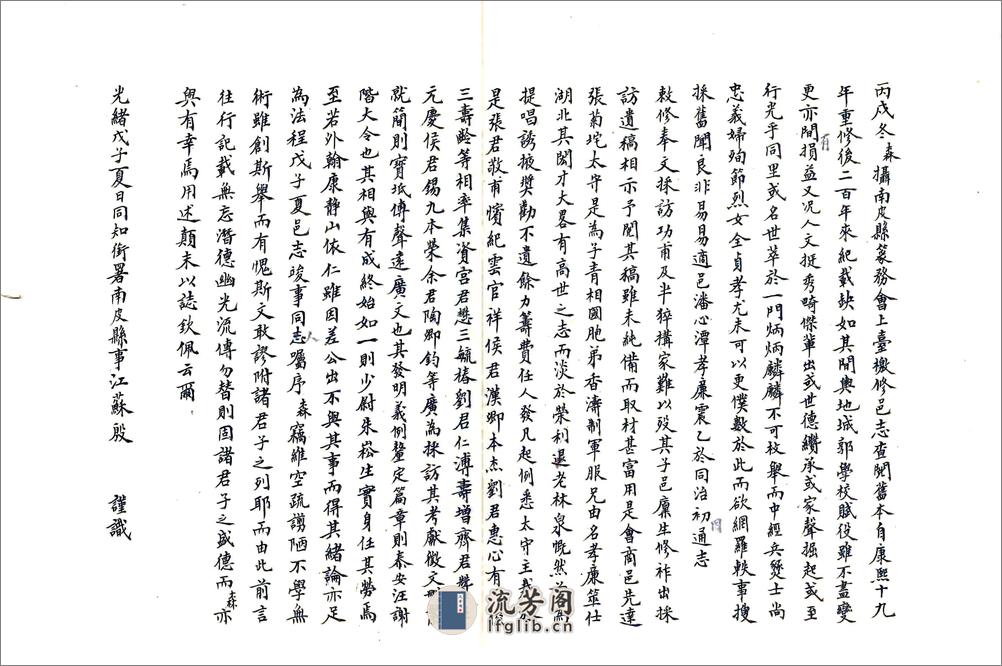 丙戌冬森攝南皮縣篆務會上臺檄修邑志查閱舊本自康熙十九
年重修後二百年來紀載缺如其間輿地城郭學校賦役雖不盡變
更亦間有損益又况人文挺秀畸傑輩出或世德纘承或家聲掘起或至
行光乎同里或名世萃於一門炳炳麟麟不可枚舉而中經兵燹士尚
忠義婦殉節烈女全貞孝尤未可以更僕數於此而欲網羅軼事搜
採舊聞良非易易適邑潘心潭孝廉震乙於同治初同通志
敕修奉文採訪功甫及半猝搆家難以歿其子邑廩生修祚出採
訪遺稿相示予閱其稿雖未純備而取材甚富用是會商邑先達
張菊垞太守是為子青相國胞弟香濤制軍服兄由名孝廉筮仕
湖北其閎才大畧有高世之志而淡於榮利退老林泉慨然
提唱誘掖奨勸不遺餘力籌費任人發凡起例悉太守主
是張君敬甫懷紀雲官祥侯君漢卿本杰劉君惠心有
三壽齡等相率集資宫君懋三毓椿劉君仁溥壽增齊君
元慶侯君錫九本榮余君陶卿鈞等廣為採訪其考獻徵文
就簡則寶坻傅聲遠廣文也其發明義例釐定篇章則泰安汪謝
階大令也其相與有成終始如一則少尉朱崧生實身任其勞焉
至若外翰康靜山依仁雖因差公出不與其事而得其緒論亦足
為法程戊子夏邑志竣事同人志囑序森竊維空疏謭陋不學無
術雖創斯舉而有愧斯文敢謬附諸君子之列耶而由此前言
往行記載無忘潛德幽光流傳勿替則固諸君子之盛德而森亦
與有幸焉用述顛末以誌欽佩云爾
光緒戊子夏日同知銜署南皮縣事江蘇殷 謹識
流芳阁
lfglib.cn